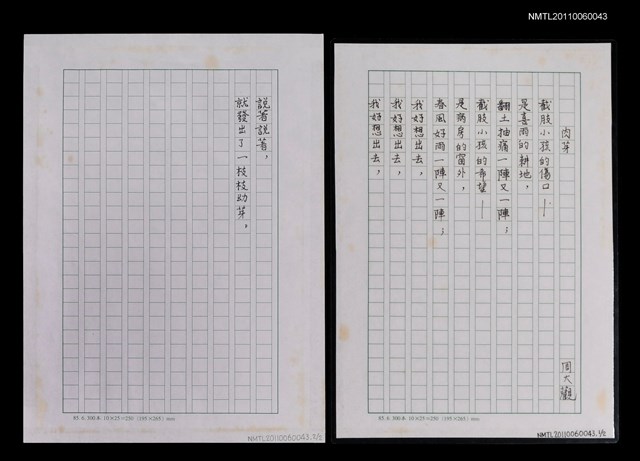 NMTL20110060043
肉芽
周大觀
截肢小孩的傷口——
是喜雨的耕地，
翻土抽痛一陣又一陣；
截肢小孩的希望——
是病房的窗外，
春風好雨一陣又一陣；
我好想出去，
我好想出去，
我好想出去，
85.6.300本 10×25=250 (195×265) mm
NMTL20110060043 1/2
說著說著，
就發出了一枝枝幼芽。
85.6.300本 10×25=250 (195×265) mm
NMTL20110060043 2/2